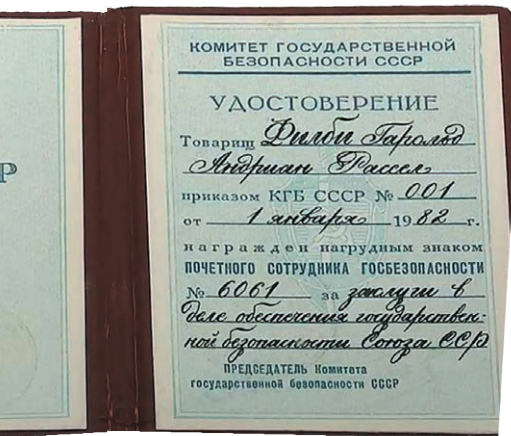 Р
КОМИТЕТ ГОСУДАРСТВЕННОЙ
БЕЗОПАСНОСТИ СССР
УДОСТОВЕРЕНИЕ
Товарищ Филби Гарольд
Андриан Рассел
приказом КГБ СССР № 001
от 1 января 1982 г.
награжден нагрудным знаком
ПОЧЕТНОГО СОТРУДНИКА ГОСБЕЗОПАСНОСТИ
№ 6061 за заслуги в
деле обеспечения государствен-
ной безопасности Союза ССР
ПРЕДСЕДАТЕЛЬ Комитета
государственной безопасности СССР